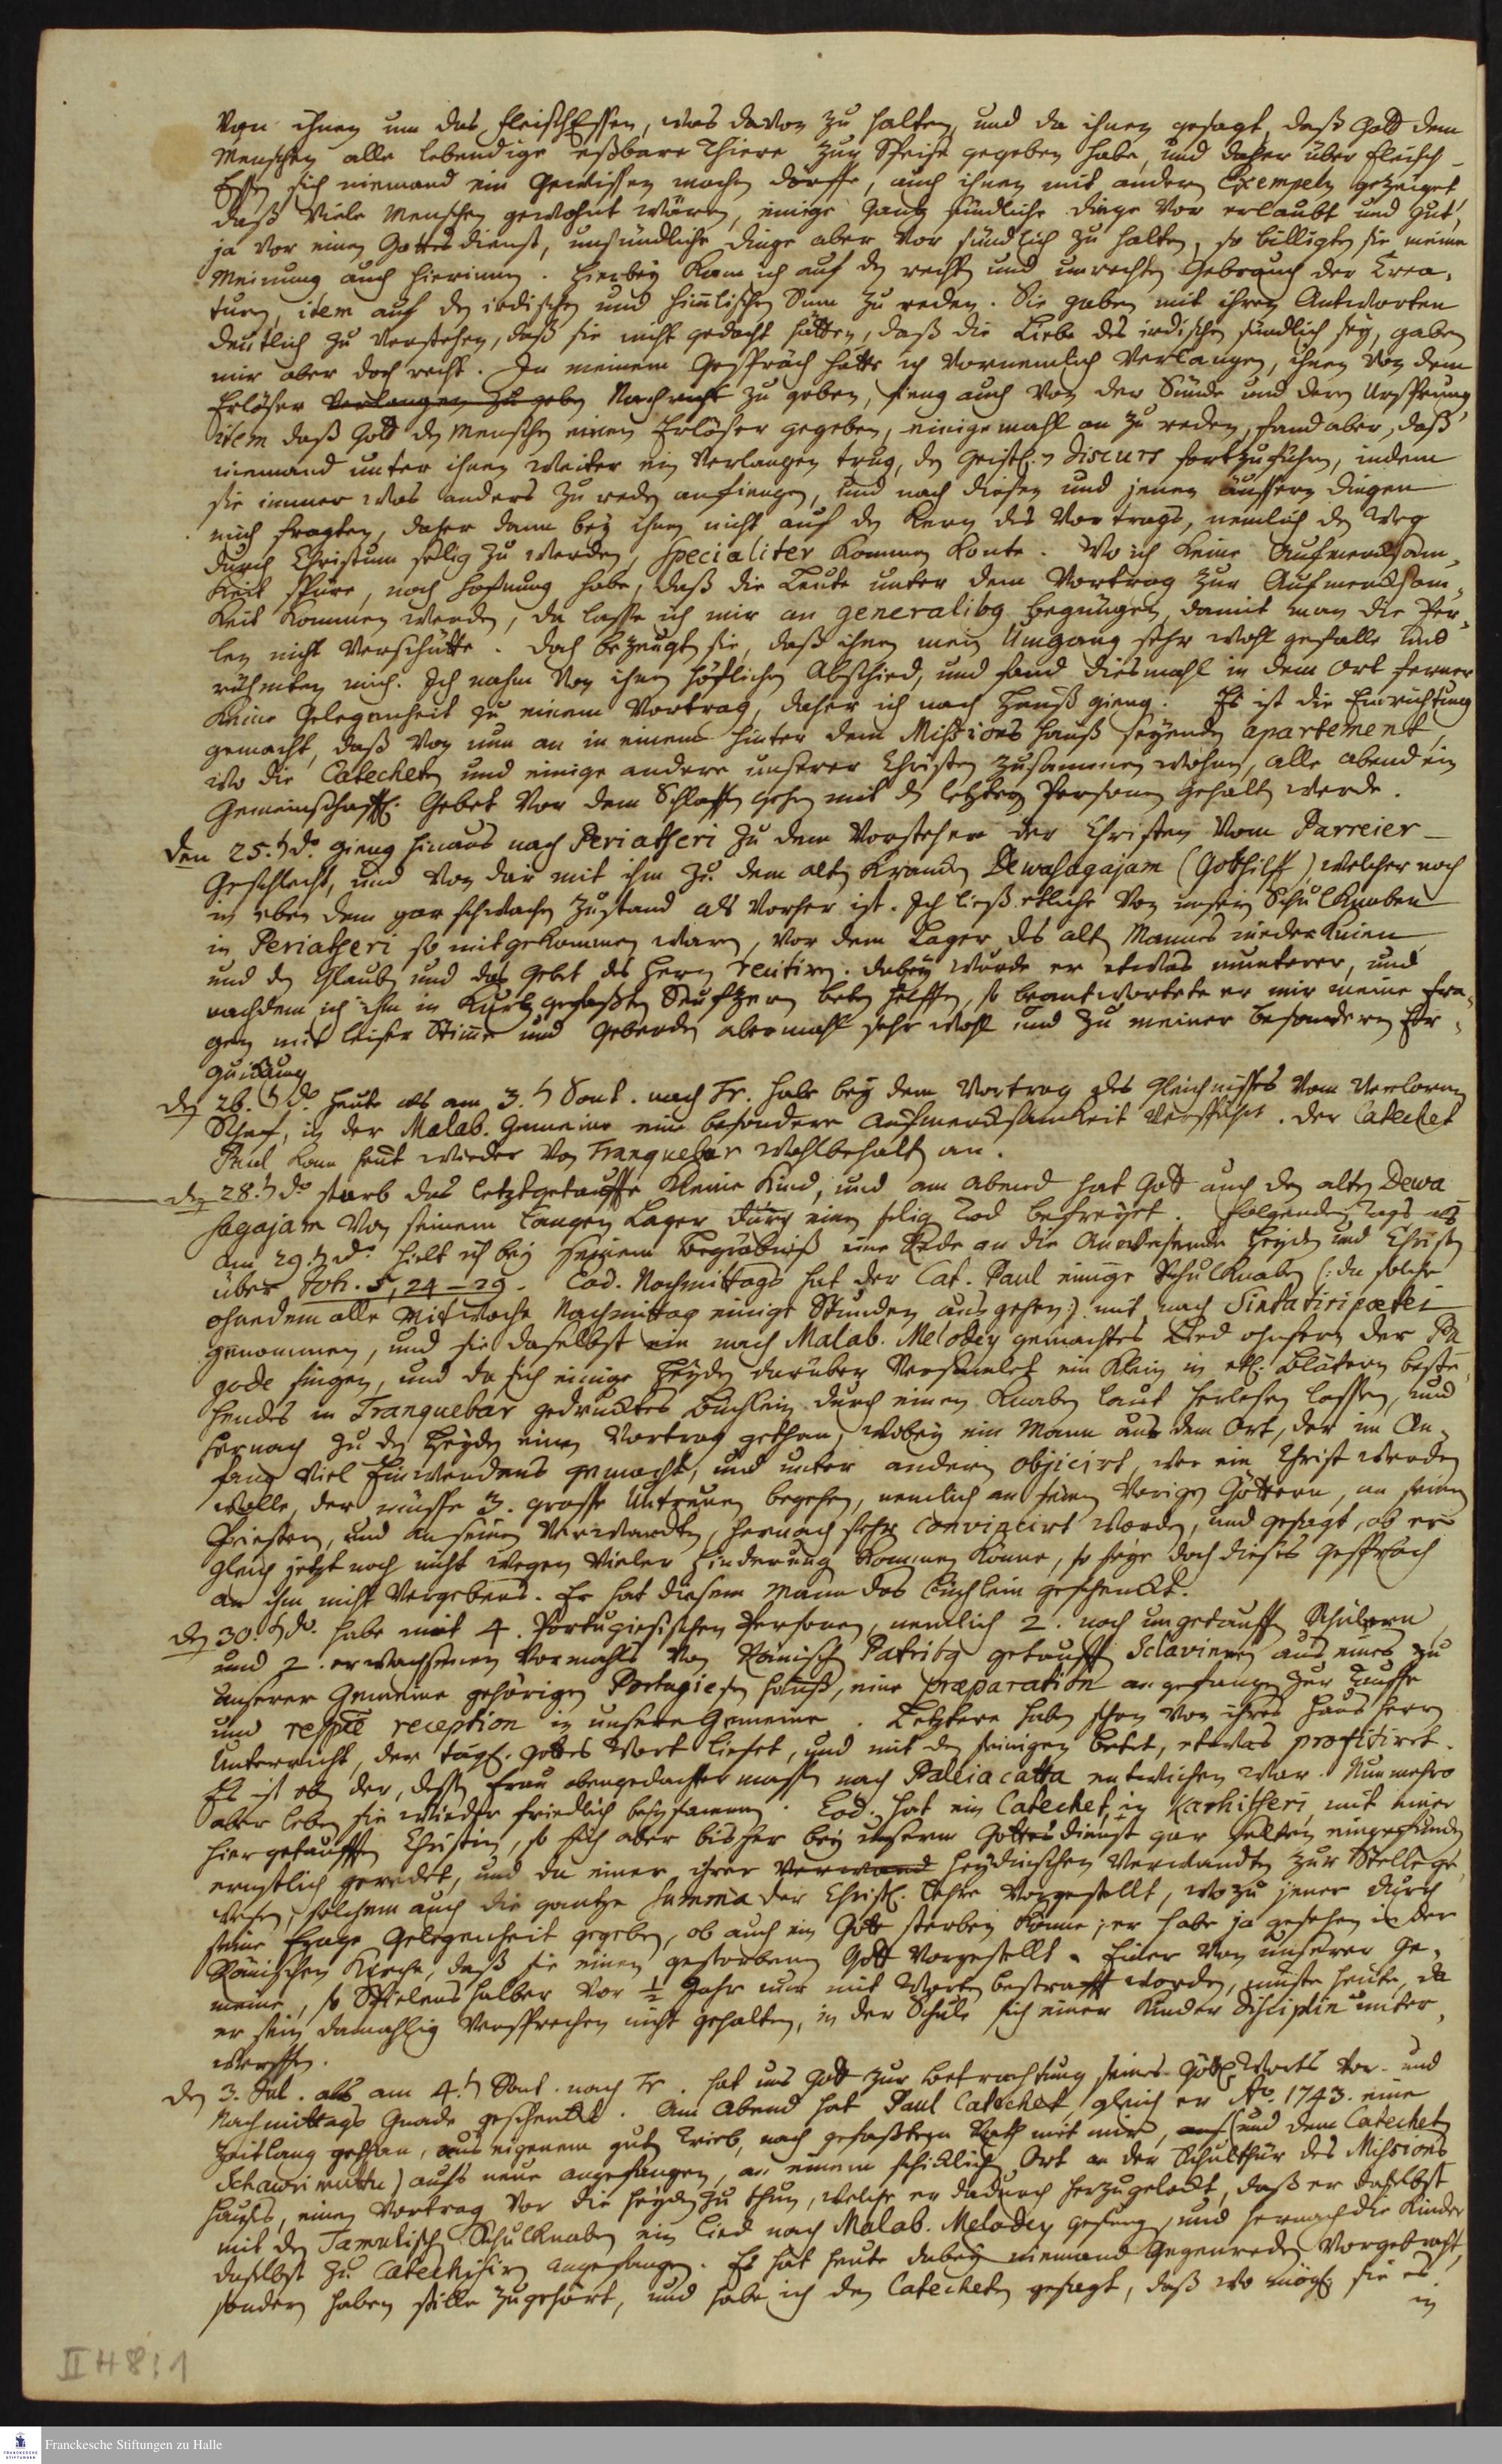 Von ihnen um das FleischEssen, was davon zu halten, und da ihnen gesagt, daß Gott dem
Menschen alle lebendige eßbare Thiere zur Speise gegeben habe, und daher über Fleisch-
Essen sich niemand ein Gewissen machen dörffe, auch ihnen mit andern Exempeln gezeiget,
daß viele Menschen gewohnt wären, einige gantz sündliche dinge vor erlaubt und gut,
ja vor einen Gottesdienst, unsündliche dinge aber vor sündlich zu halten, so billigten sie meine
Meinung auch hierinnen. Hierbey kam ich auf den rechten und unrechten Gebrauch der Crea-
turen, item auf den irdischen und himlischen Sinn zu reden. Sie gaben mit ihren Antworten
deutlich zu verstehen, daß sie nicht gedacht hätten, daß die Liebe des irdischen sündlich sey, gaben
mir aber doch recht. In meinem Gespräch hatte ich vornemlich Verlangen, ihnen von dem
Erlöser Verlangen zu geben Nachricht zu geben, fieng auch von der Sünde und deren Ursprung
item daß Gott den Menschen einen Erlöser gegeben, einigemahl an zu reden, fand aber, daß
niemand unter ihnen weiter ein Verlangen trug, den Geistl.n Discurs fortzuführen, indem
sie immer was anders zu reden anfiengen, und nach diesen und jenen äussern dingen
mich fragten, daher dann bey ihnen nicht auf den Kern des Vortrags, nemlich den Weg
durch Christum selig zu werden, specialiter kommen konte. Wo ich keine Aufmercksam-
keit spüre, noch Hofnung habe, daß die Leute unter dem Vortrag zur Aufmercksam-
keit kommen werden, da lasse ich mir an generalibg begnügen, damit man die Per-
len nicht verschütte. Doch bezeugten sie, daß ihnen mein Umgang sehr wohl gefalle und
rühmten mich. Ich nahm von ihnen höflichen Abschied, und fand diesmahl in dem Ort ferner
keine Gelegenheit zu einem Vortrag, daher ich nach Hauß gieng. Es ist die Einrichtung
gemacht, daß von nun an in einem hinter dem Missions Hauß seyenden apartement,
wo die Catecheten und einige andere unserer Christen zusammen wohnen, alle abend ein
Gemeinschafftl. Gebet vor dem Schlaffen gehen mit den letztern Personen gehalten werde.
Den 25.t do. gieng hinaus nach Periatheri zu dem Vorsteher der Christen vom Parreier-
Geschlecht, und von dar mit ihm zu dem alten Krancken Dewasagajam (Gotthilff) welcher noch
in eben dem gar schwachen Zustand als vorher ist. Ich ließ etliche von unsern Schulknaben
in Periatheri so mitgekommen waren, vor dem Lager des alten Mannes niederknien
und den Glauben und das Gebet des Herrn recitiren. dabey wurde er etwas munterer, und
nachdem ich ihm in Kurtz gefaßten Seufzern beten helffen, so beantwortete er mir meine Fra-
gen mit leiser Stimme und Geberden abermahl sehr wohl und zu meiner besondern Er-
quickung
den 26.t do. Heute als am 3.t Sont. nach Tr. habe bey dem Vortrag des Gleichnisses vom Verlornen
Schaf, in der Malab. Gemeine eine besondere Aufmercksamkeit verspühret. Der Catechet
Paul kam heut wieder von Tranquebar wohlbehalten an.
den 28.t do starb das letztgetauffte kleine Kind, und am abend hat Gott auch den alten Dewa
sagajam von seinem langen Lager durch einen selig Tod befreyet. Folgenden Tags als
am 29.t do hielt ich bey seinem Begräbniß eine Rede an die Anwesende Heyden und Christen
über Joh. 5, 24-29. Eod. Nachmittags hat der Cat. Paul einige Schulknaben (: da solche
ohnedem alle Mitwoche Nachmittag einige Stunden aus gehen:) mit nach Sintatiripættei
genommen, und sie daselbst ein nach Malab. Melodey gemachtes Lied ohnfern der Pa
gode singen, und da sich einige Heyden darüber versamlet ein klein in etl. Blätern beste-
hendes in Tranquebar gedrucktes Büchlein durch einen Knaben laut herlesen lassen, und
hernach zu den Heyden einen Vortrag gethan, wobey ein Mann aus dem Ort, der im An-
fang viel Einwendens gemacht, und unter andern objicirt, wer ein Christ werden
wolle, der müsse 3. grosse Untreuen begehen, nemlich an seinen Vorigen Göttern, an seinen
Priestern, und an seinen Verwandten, hernach sehr convincirt worden, und gesagt, ob er
gleich jetzt noch nicht wegen vieler Hinderung kommen könne, so seye doch dieses Gespräch
an ihm nicht vergebens. Er hat diesem Mann das Büchlein geschenckt.
den 30.t do. habe mit 4. Portugiesischen Personen, nemlich 2. noch ungetaufften Schülern,
und 2. erwachsenen vormahls von Römisch Patribg getaufften Sclavinnen aus eines zu
Unserer Gemeine gehörigen Portugiesen Hauß, eine præparation angefangen zur Tauffe
und respte reception in unsere Gemeine. Letztere haben schon von ihres Haus Herrn
Unterricht, der tägl. Gottes Wort lieset, und mit den seinigen betet, etwas profitiret.
Es ist eben der, dessen Frau obengedachter massen nach Palliacatta entwichen war. Nunmehro
aber leben sie wieder friedlich beysammen. Eod. hat ein Catechet in Karhitheri mit einer
hier getaufften Christin, so sich aber bisher bey unserm Gottesdienst gar selten eingefunden
ernstlich geredet, und da einer ihrer Verwand heydnischen Verwandten zur Stelle ge-
wesen, solchem auch die gantze Summa der Christl. Lehre vorgestellt, wozu jener durch
seine Frage Gelegenheit gegeben, ob auch ein Gott sterben könne; er habe ja gesehen in der
Römischen Kirche, daß sie einen gestorbenen Gott vorgestellt. Einer von unserer Ge-
meine, so Spielens halber vor ½ Jahr nur mit Worten bestrafft worden, muste heute, da
er sein damahlig Versprechen nicht gehalten, in der Schule sich einer Kinder Disciplin unter-
werffen.
den 3. Jul. als am 4.t Sont. nach Tr. hat uns Gott zur Betrachtung seines Göttl. Worts vor- und
Nachmittags Gnade geschenckt. Am Abend hat Paul Catechet, gleich er Ao. 1743. eine
Zeitlang gethan, aus eigenem guten Trieb, nach gefaßtem Rath mit mir, auf (und dem Catecheten
Schawrimuttu) aufs neue angefangen, an einem schicklichen Ort an der Schulthür des Missions
Hauses, einen Vortrag vor die Heyden zu thun, welche er dadurch herzugelockt, daß er daselbst
mit den Tamulischen Schulknaben ein Lied nach Malab. Melodey gesungen, und hernach die Kinder
daselbst zu Catechisiren angefangen. Es hat heute dabey niemand Gegenreden vorgebracht,
sondern haben stille zugehört, und habe ich den Catecheten gesagt, daß wo mögl. sie es
in
II H 8:1
FRANCKESCHE STIFTUNGEN
Franckesche Stiftungen zu Halle